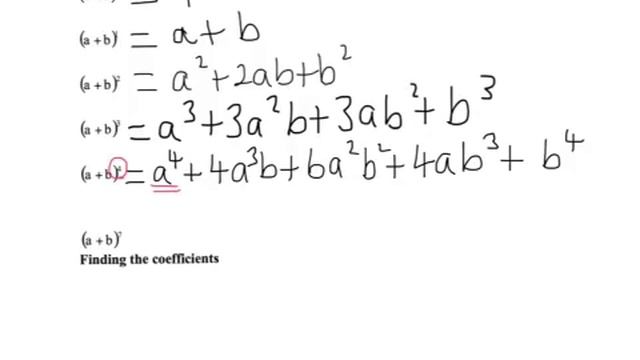 (a + b)¹ = a + b
(a + b)² = a² + 2ab + b²
(a + b)³ = a³ + 3a²b + 3ab² + b³
(a + b)⁴ = a⁴ + 4a³b + 6a²b² + 4ab³ + b⁴
(a + b)
Finding the coefficients